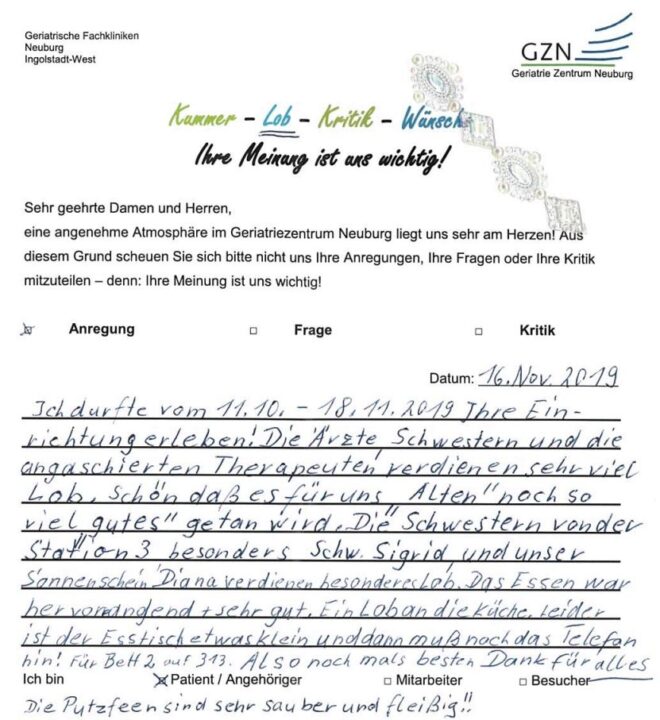 Geriatrische Fachkliniken
Neuburg
Ingolstadt-West
GZN
Geriatrie Zentrum Neuburg
Kummer – Lob – Kritik – Wünsch
Ihre Meinung ist uns wichtig!
Sehr geehrte Damen und Herren,
eine angenehme Atmosphäre im Geriatriezentrum Neuburg liegt uns sehr am Herzen! Aus
diesem Grund scheuen Sie sich bitte nicht uns Ihre Anregungen, Ihre Fragen oder Ihre Kritik
mitzuteilen – denn: Ihre Meinung ist uns wichtig!
☒ Anregung □ Frage □ Kritik
Datum: 16. Nov. 2019
Ich durfte vom 11.10. – 18.11.2019 Ihre Ein-
richtung erleben! Die Ärzte, Schwestern und die
angaschierten Therapeuten verdienen sehr viel
Lob. Schön daß es für uns „Alten" noch so
viel gutes" getan wird. Die Schwestern von der
Station 3 besonders Schw. Sigrid, und unser
Sonnenschein Diana verdienen besonderes Lob. Das Essen war
hervorrangend + sehr gut. Ein Lob an die Küche. Leider
ist der Esstisch etwas klein und dann muß noch das Telefon
hin! Für Bett 2 auf 313. Also noch mals besten Dank für alles
Ich bin ☒ Patient / Angehöriger □ Mitarbeiter □ Besucher
Die Putzfeen sind sehr sauber und fleißig!!